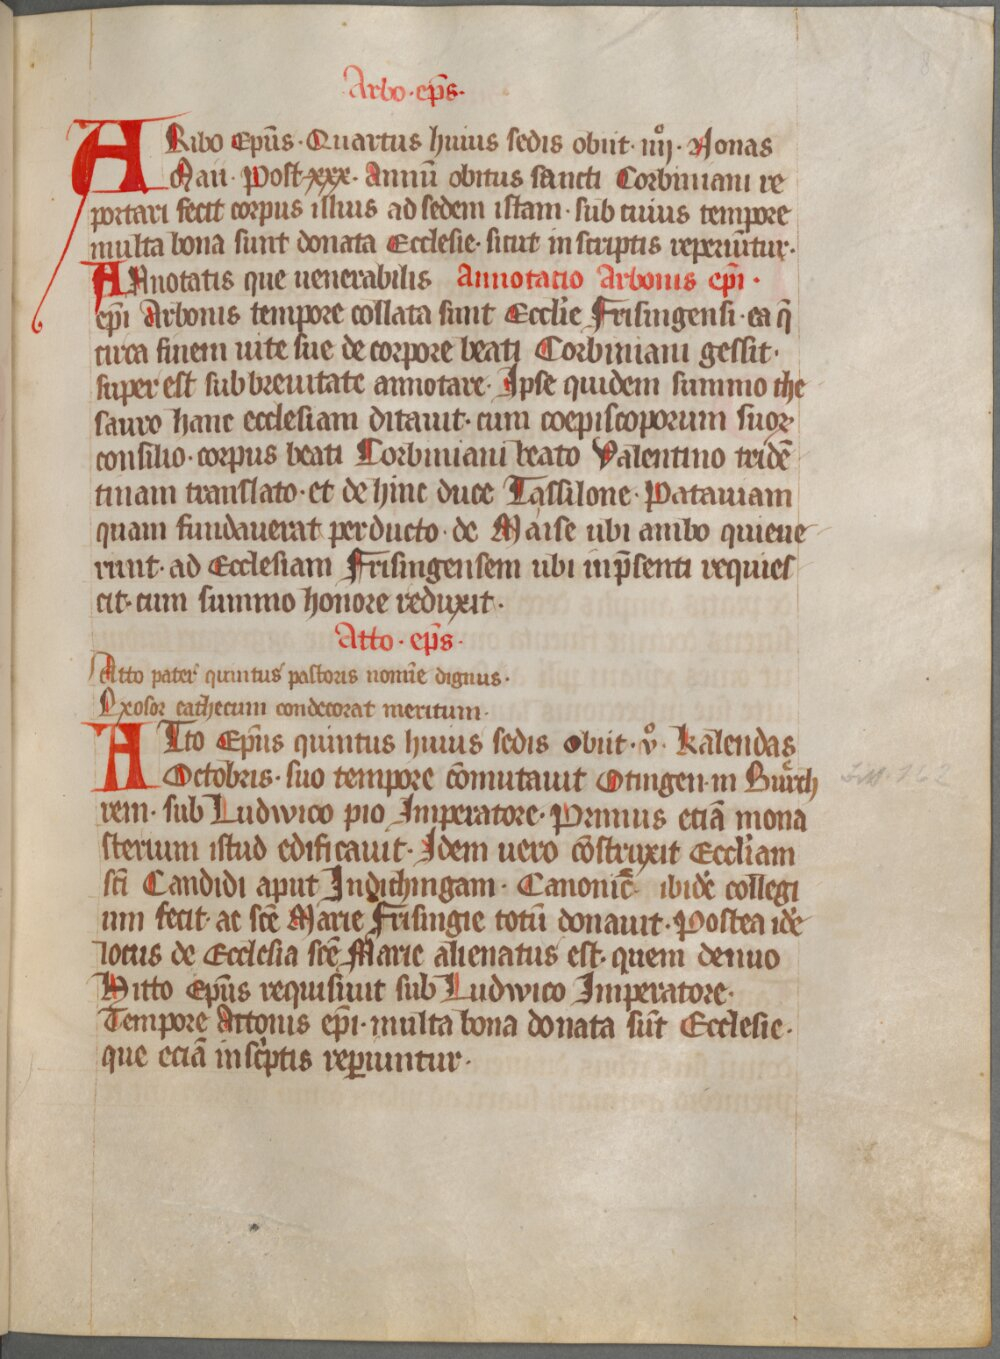 Arbo · ep̅s ·
ARibo Ep̅us · Quartus huius sedis obiit · iiijͦ · Nonas
Maii · Post · xxx · Annu̅ obitus sancti Corbiniani re
portari fecit corpus illius ad sedem istam · sub cuius tempore
multa bona sunt donata Ecclesie · sicut in scriptis reperiu̅tur ·
ANnotatis que uenerabilis Annotacio Arbonis ep̅i ·
ep̅i Arbonis tempore collata sunt Eccl̅ie Frisingensi · ea q̅
circa finem uite sue de corpore beati Corbiniani gessit ·
super est sub breuitate annotare · Ipse quidem summo the
sauro hanc ecclesiam ditauit · cum coepiscoporum suoꝝ
consilio · corpus beati Corbiniani beato Valentino tride̅
tinam translato · et de hinc duce Tassilone · Patauiam
quam fundauerat perducto · de Maise ubi ambo quieue
runt · ad Ecclesiam Frisingensem ubi in p̅senti requies
cit · cum summo honore reduxit ·
Atto · ep̅s ·
Atto pater quintus pastoris nomi̅e dignus ·
Exosor cathecum condecorat meritum ·
ATto Ep̅us quintus huius sedis obiit · vͦ · kalendas
Octobris · suo tempore co̅mutauit Otingen · in Burch
rem · sub Ludwico pio Imperatore · Primus ecia̅ mona
sterium istud edificauit · Idem uero co̅struxit Eccl̅iam
sc̅i Candidi aput Indichingam · Canonic̅ · ibide̅ collegi
um fecit · ac sc̅e Marie Frisingie totu̅ donauit · Postea ide̅
locus de Ecclesia sc̅e Marie alienatus est · quem denuo
Hitto Ep̅us requisiuit sub Ludwico Imperatore ·
Tempore Attonis ep̅i · multa bona donata su̅t Ecclesie ·
que ecia̅ in sc̅ptis rep̅iuntur ·